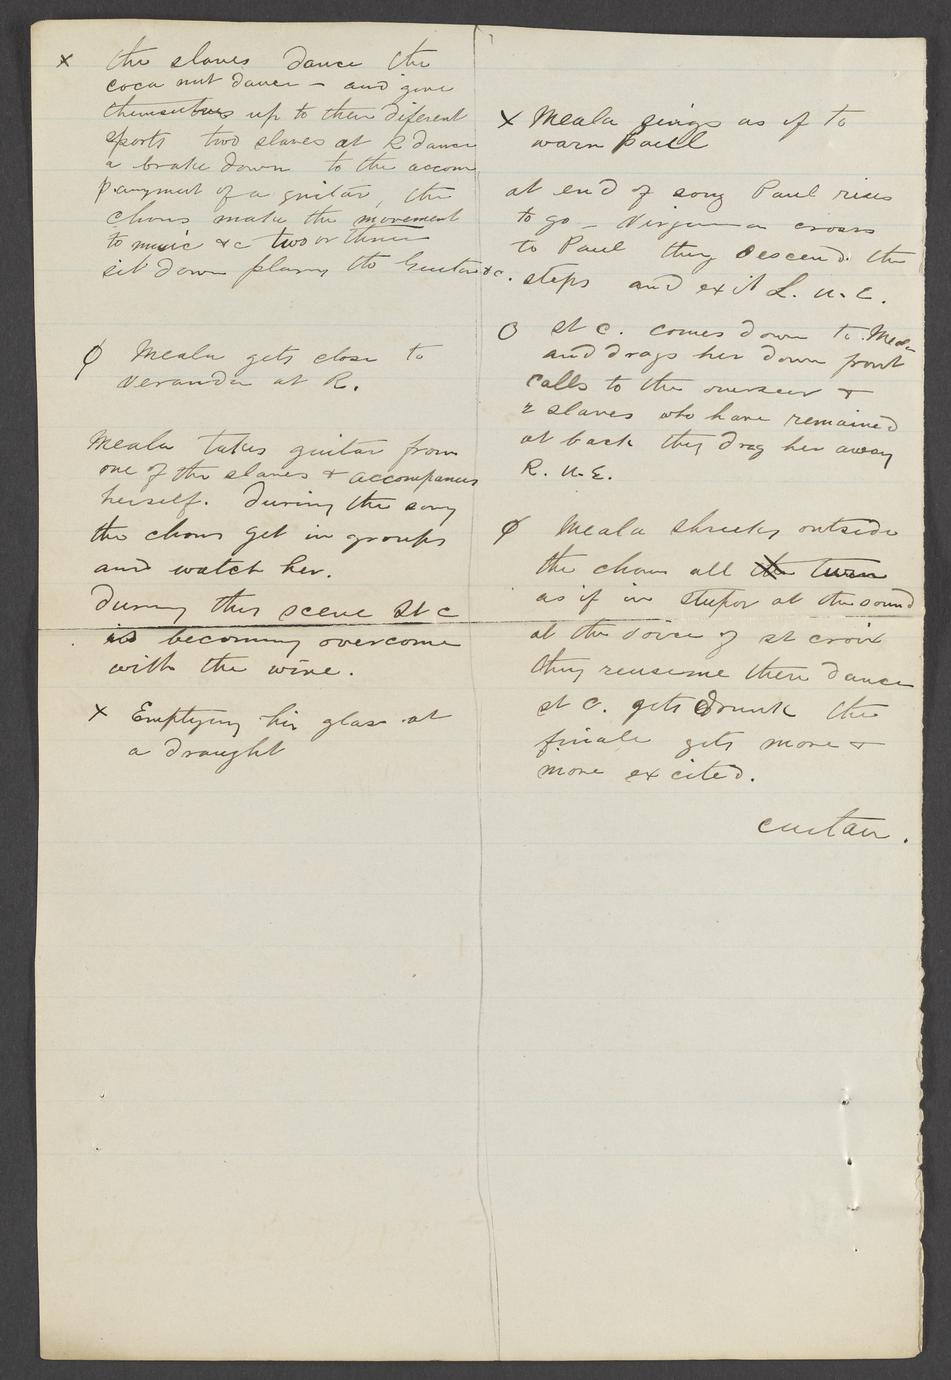 x the slaves dance the
coca nut dance – and give
themselves up to their diferent
sports two slaves at R dance
a brake down to the accom
panyment of a guitar, the
chorus make the movement
to music &c two or three
sit down playing the Guitar &c.
ϕ Meala gets close to
veranda at R.
Meala takes guitar from
one of the slaves & accompanies
herself. During the song
the chorus get in groups
and watch her.
During this scene St C
is becoming overcome
with the wine.
x Emptying his glass at
a draught
x Meala sings as if to
warn Paul
at end of song Paul rises
to go – Virginia crosses
to Paul they descend the
steps and exit L. U. E.
O St C. comes down to Meala
and drags her down front
calls to the overseer &
2 slaves who have remained
at back they drag her away
R. U. E.
ϕ Meala shrieks outside
the chorus all the turn
as if in stupor at the sound
at the voice of St Croix
they reuseme there dance
St C. gets Drunk the
finale gets more &
more excited.
curtain.